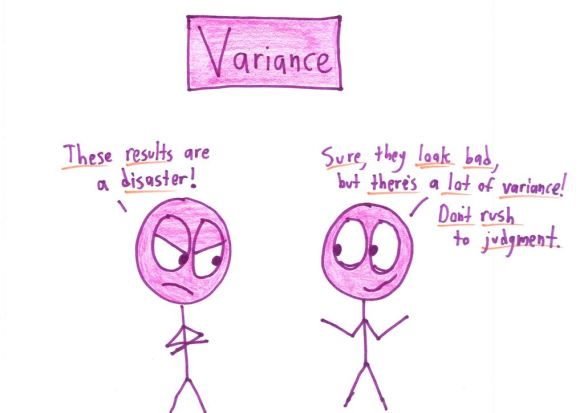 Variance
These results are
a disaster!
Sure, they look bad,
but there's a lot of variance!
Don't rush
to judgment.